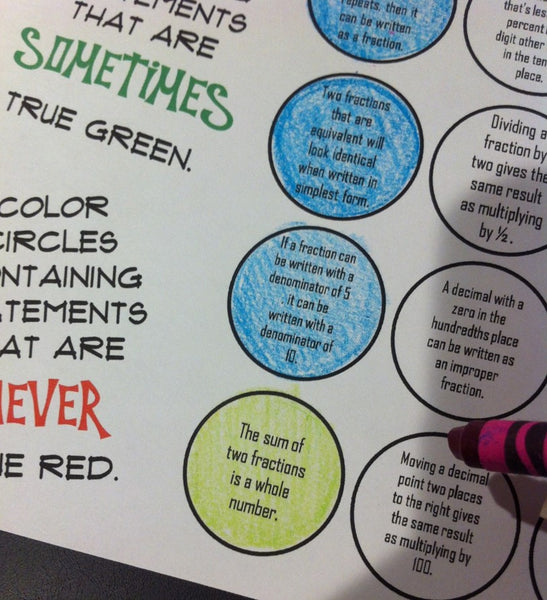 THAT ARE
SOMETIMES
TRUE GREEN.
COLOR
CIRCLES
THAT ARE
NEVER
RED.
repeats, then it
can be written
as a fraction.
that's less
percent
digit other
in the
place.
Two fractions
that are
equivalent will
look identical
when written in
simplest form.
Dividing a
fraction by
two gives the
same result
as multiplying
by ½.
If a fraction can
be written with a
denominator of 5
it can be
written with a
denominator of
10.
A decimal with a
zero in the
hundredths place
can be written as
an improper
fraction.
The sum of
two fractions
is a whole
number.
Moving a decimal
point two places
to the right gives
the same result
as multiplying by
100.